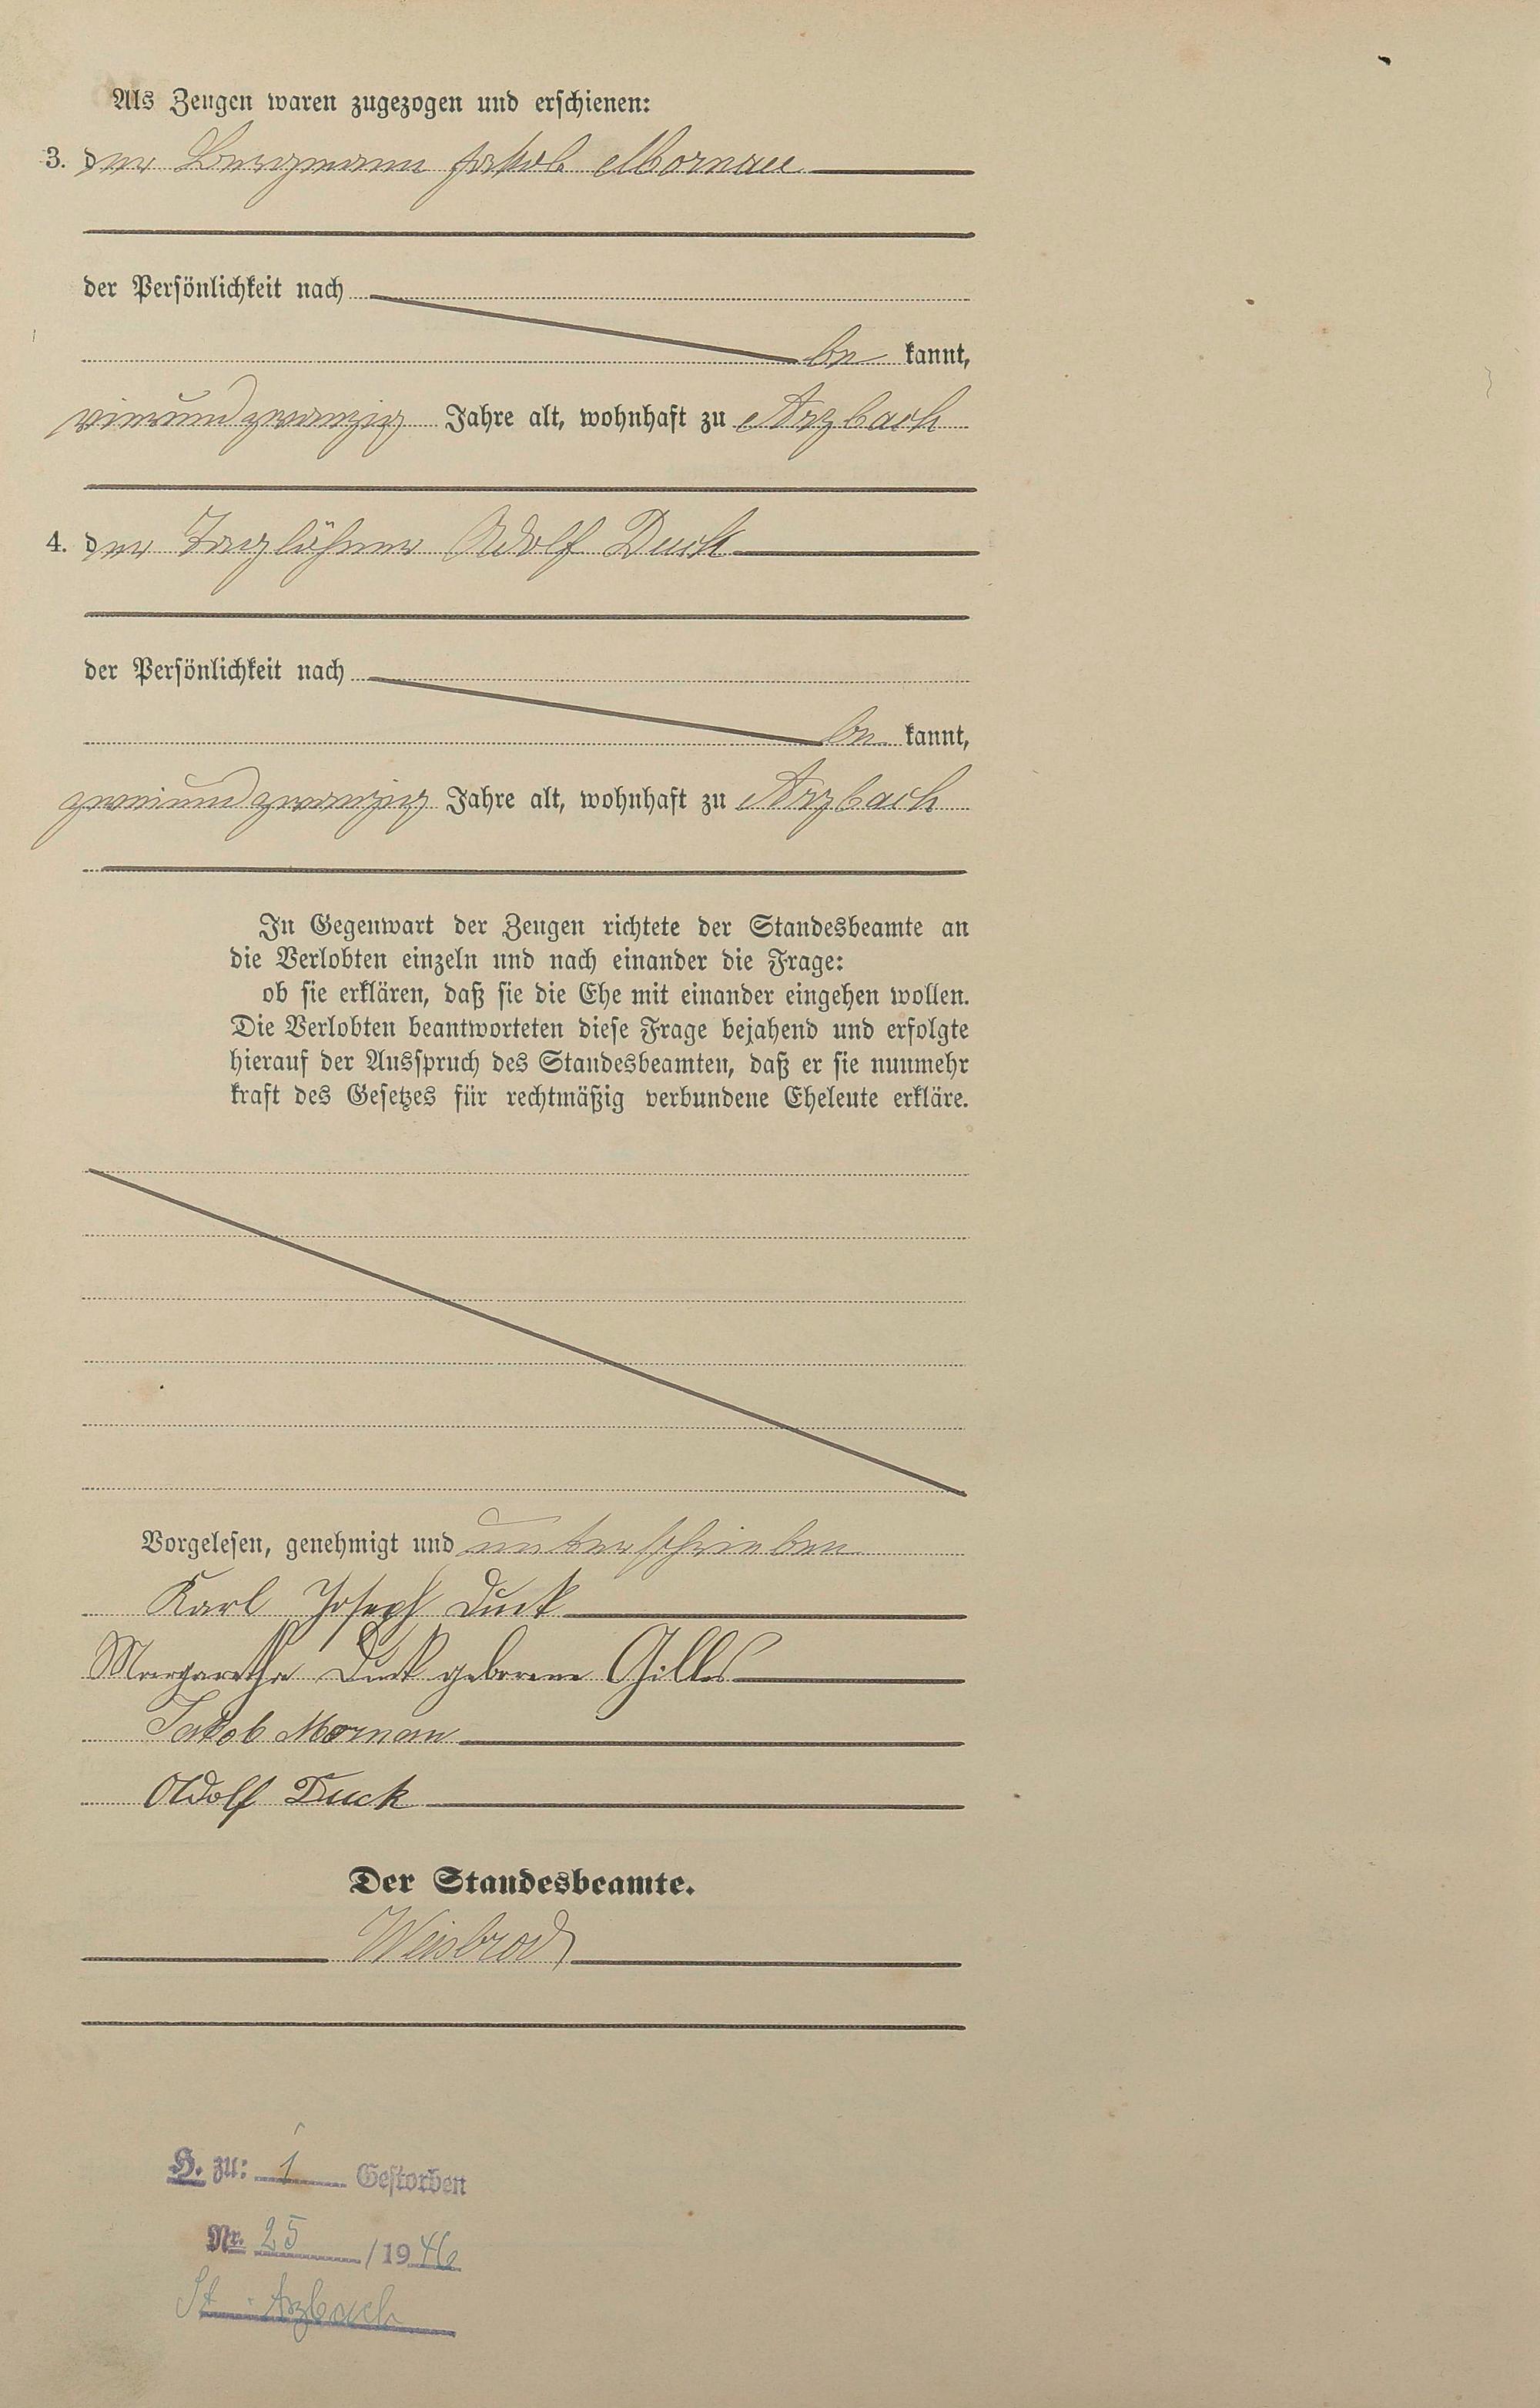 Als Zeugen waren zugezogen und erschienen:
3. der Bergmann Jakob Mornau
der Persönlichkeit nach
be kannt,
vierundzwanzig Jahre alt, wohnhaft zu Arzbach
4. der Taglöhner Adolf Duck
der Persönlichkeit nach
be kannt,
zweiundzwanzig Jahre alt, wohnhaft zu Arzbach
In Gegenwart der Zeugen richtete der Standesbeamte an
die Verlobten einzeln und nach einander die Frage:
ob sie erklären, daß sie die Ehe mit einander eingehen wollen.
Die Verlobten beantworteten diese Frage bejahend und erfolgte
hierauf der Ausspruch des Standesbeamten, daß er sie nunmehr
kraft des Gesetzes für rechtmäßig verbundene Eheleute erkläre.
Vorgelesen, genehmigt und unterschrieben
Karl Joseph Duck
Margaretha Duck geborene Gilles
Jakob Mornau
Adolf Duck
Der Standesbeamte.
Weisbrod
H. zu: 1 Gestorben
Nr. 25 /1946
St. Arzbach